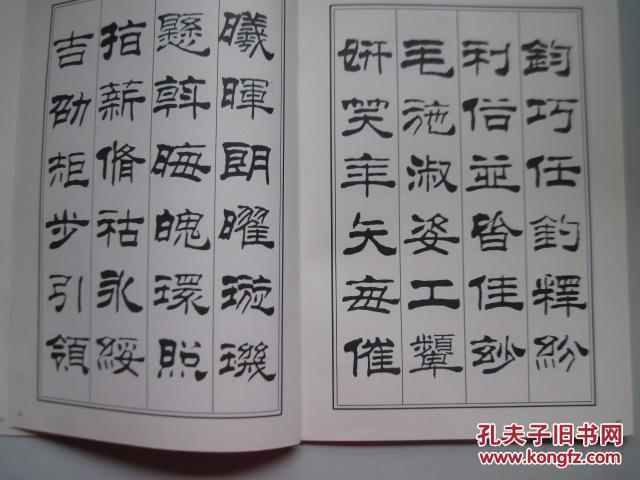 鈞巧任釣釋紛
利俗並皆佳玅
毛施淑姿工顰
妍笑年矢每催
曦暉朗曜璇璣
懸斡晦魄環照
指薪脩祜永綏
吉劭矩步引領
孔夫子旧书网
www.kongfz.com